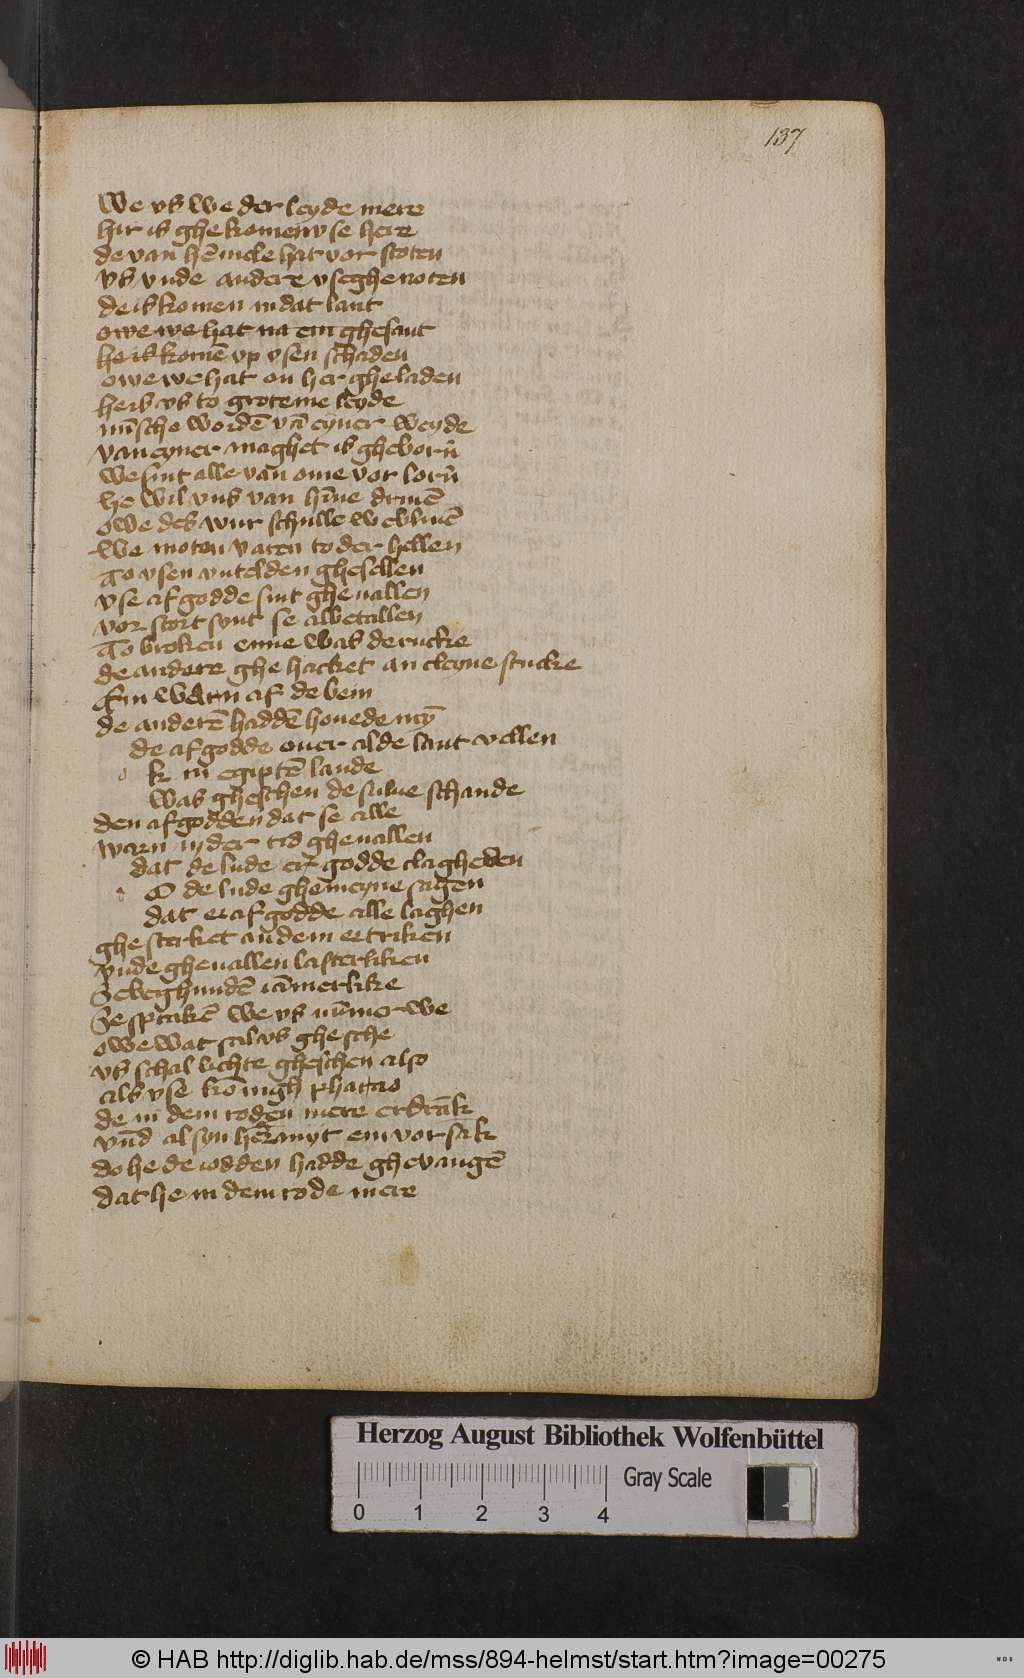 137
We vs we der leyde mere
hir is ghe komen vse here
de van hēmele hat vor stoten
vs vnde andere vse ghenoten
de is komen in dat lant
owe we hat na em ghesant
he is komē vp vsen schaden
owe we hat on her gheladen
he is vs to groteme leyde
mīsche wordē vā eyner Weyde
van eyner maghet is gheborn̄
we sint alle van ome vor lorn̄
he wil vns van hīne driuē
owe des wur schulle we bliuē
We moten varen to der hellen
To vsen vntelden ghesellen
vse afgodde sint gheuallen
vor stort synt se albetallen
To broken enne was de rucke
de andere ghe hacket an cleyne stucke
Ein warn af de bein
de anderē haddē houede neȳ
de afgodde ouer al de lant vellen
k in egiptē lande
was gheschen de sulue schande
den afgodden dat se alle
warn in der tid gheuallen
dat de lude er godde clagheden
O de lude ghemeyne sagen
dat er afgodde alle laghen
ghe sterket an dem ertriken
vnde gheuallen lasterliken
Se beghundē iāmerlike
Se sprakē we vs ūmer we
owe wat sal vs ghe sche
vs schal lichte gheschen also
als vse konīgh pharao
de in dem roden mere erdrāk
vn̄d al syn her anyt em vorsāk
do he de iodden hadde gheuangē
dat he in dem rode mere
Herzog August Bibliothek Wolfenbüttel
0 1 2 3 4
Gray Scale
© HAB http://diglib.hab.de/mss/894-helmst/start.htm?image=00275